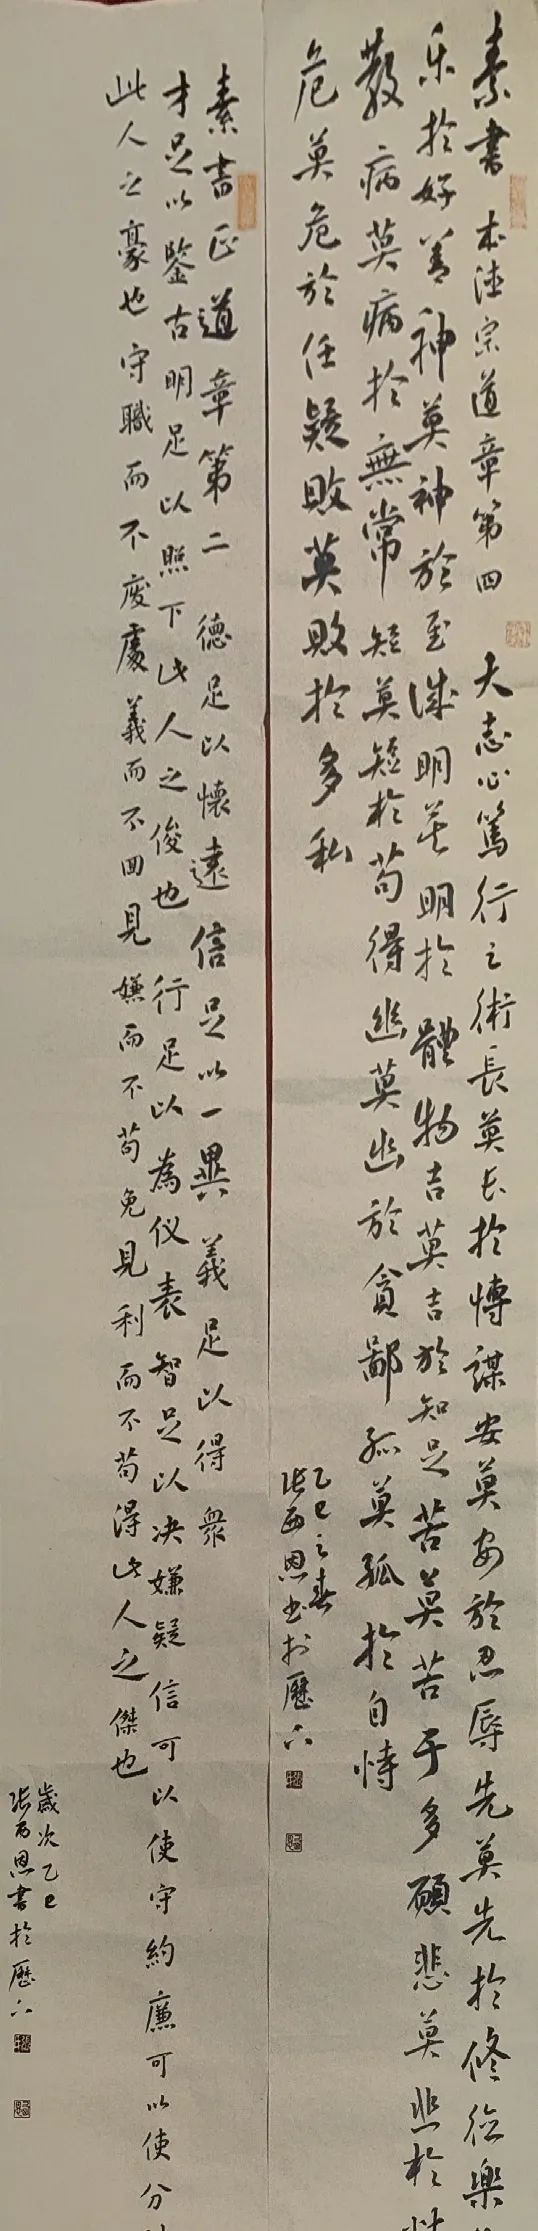 素書 本德宗道章第四 大志心篤行之術長莫長於博謀安莫安於忍辱先莫先於修德樂
乐於好善神莫神於至诚明莫明於體物吉莫吉於知足苦莫苦于多願悲莫悲於
散病莫病於無常短莫短於苟得幽莫幽於貪鄙孤莫孤於自恃
危莫危於任疑敗莫敗於多私
乙巳之春
張西恩书於歷下
素書正道章第二 德足以懷遠信足以一異義足以得衆
才足以鑒古明足以照下此人之俊也 行足以為仪表智足以决嫌疑信可以使守約廉可以使分
此人之豪也守職而不废處義而不回見嫌而不苟免見利而不苟得此人之傑也
歲次乙巳
張西恩書於歷下